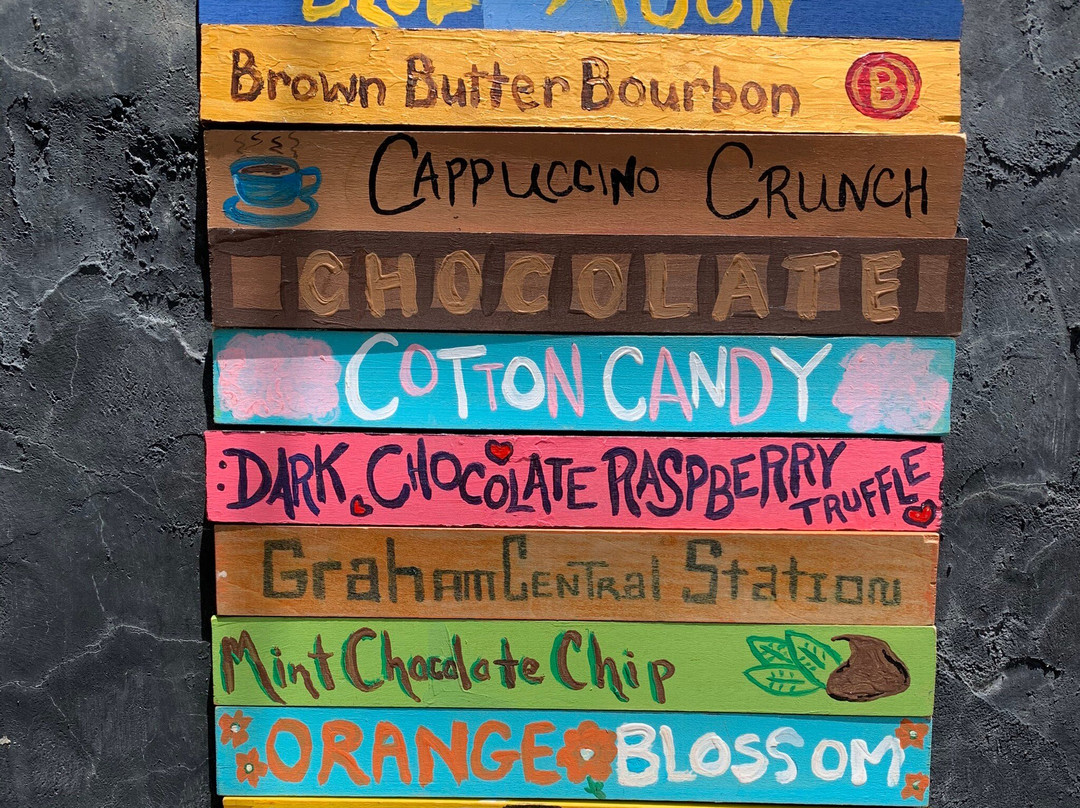 BLUE MOON
Brown Butter Bourbon B
CAPPUCCINO CRUNCH
CHOCOLATE
COTTON CANDY
DARK CHOCOLATE RASPBERRY TRUFFLE
GraHam CENTral Station
Mint Chocolate Chip
ORANGE BLOSSOM